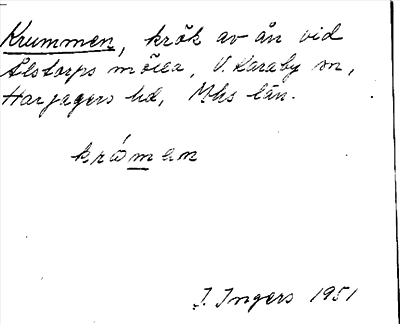 Krummen, krök av ån vid
Ålstorps mölla, V. Karaby sn,
Harjagers hd, Mhs län.
króman
J. Ingers 1951